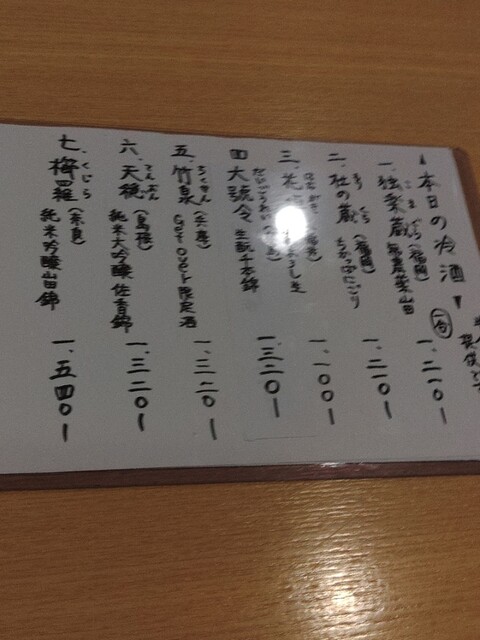 ▲本日の冷酒▼
一合
一、独楽蔵(福岡) 無農薬山田 一、二一〇ー
こま ぐら
二、杜の蔵(福岡) 一、二一〇ー
もり くら
三、 一、一〇〇ー
四 大號令 生酛千本錦 一、三二〇ー
だいごうれい
五、竹泉(兵庫) Get over 限定酒 一、三二〇ー
ちくせん
六、天穏(島根) 純米大吟醸 佐香錦 一、三二〇ー
てんおん
七、櫛羅(奈良) 純米吟醸山田錦 一、五四〇ー
くじら